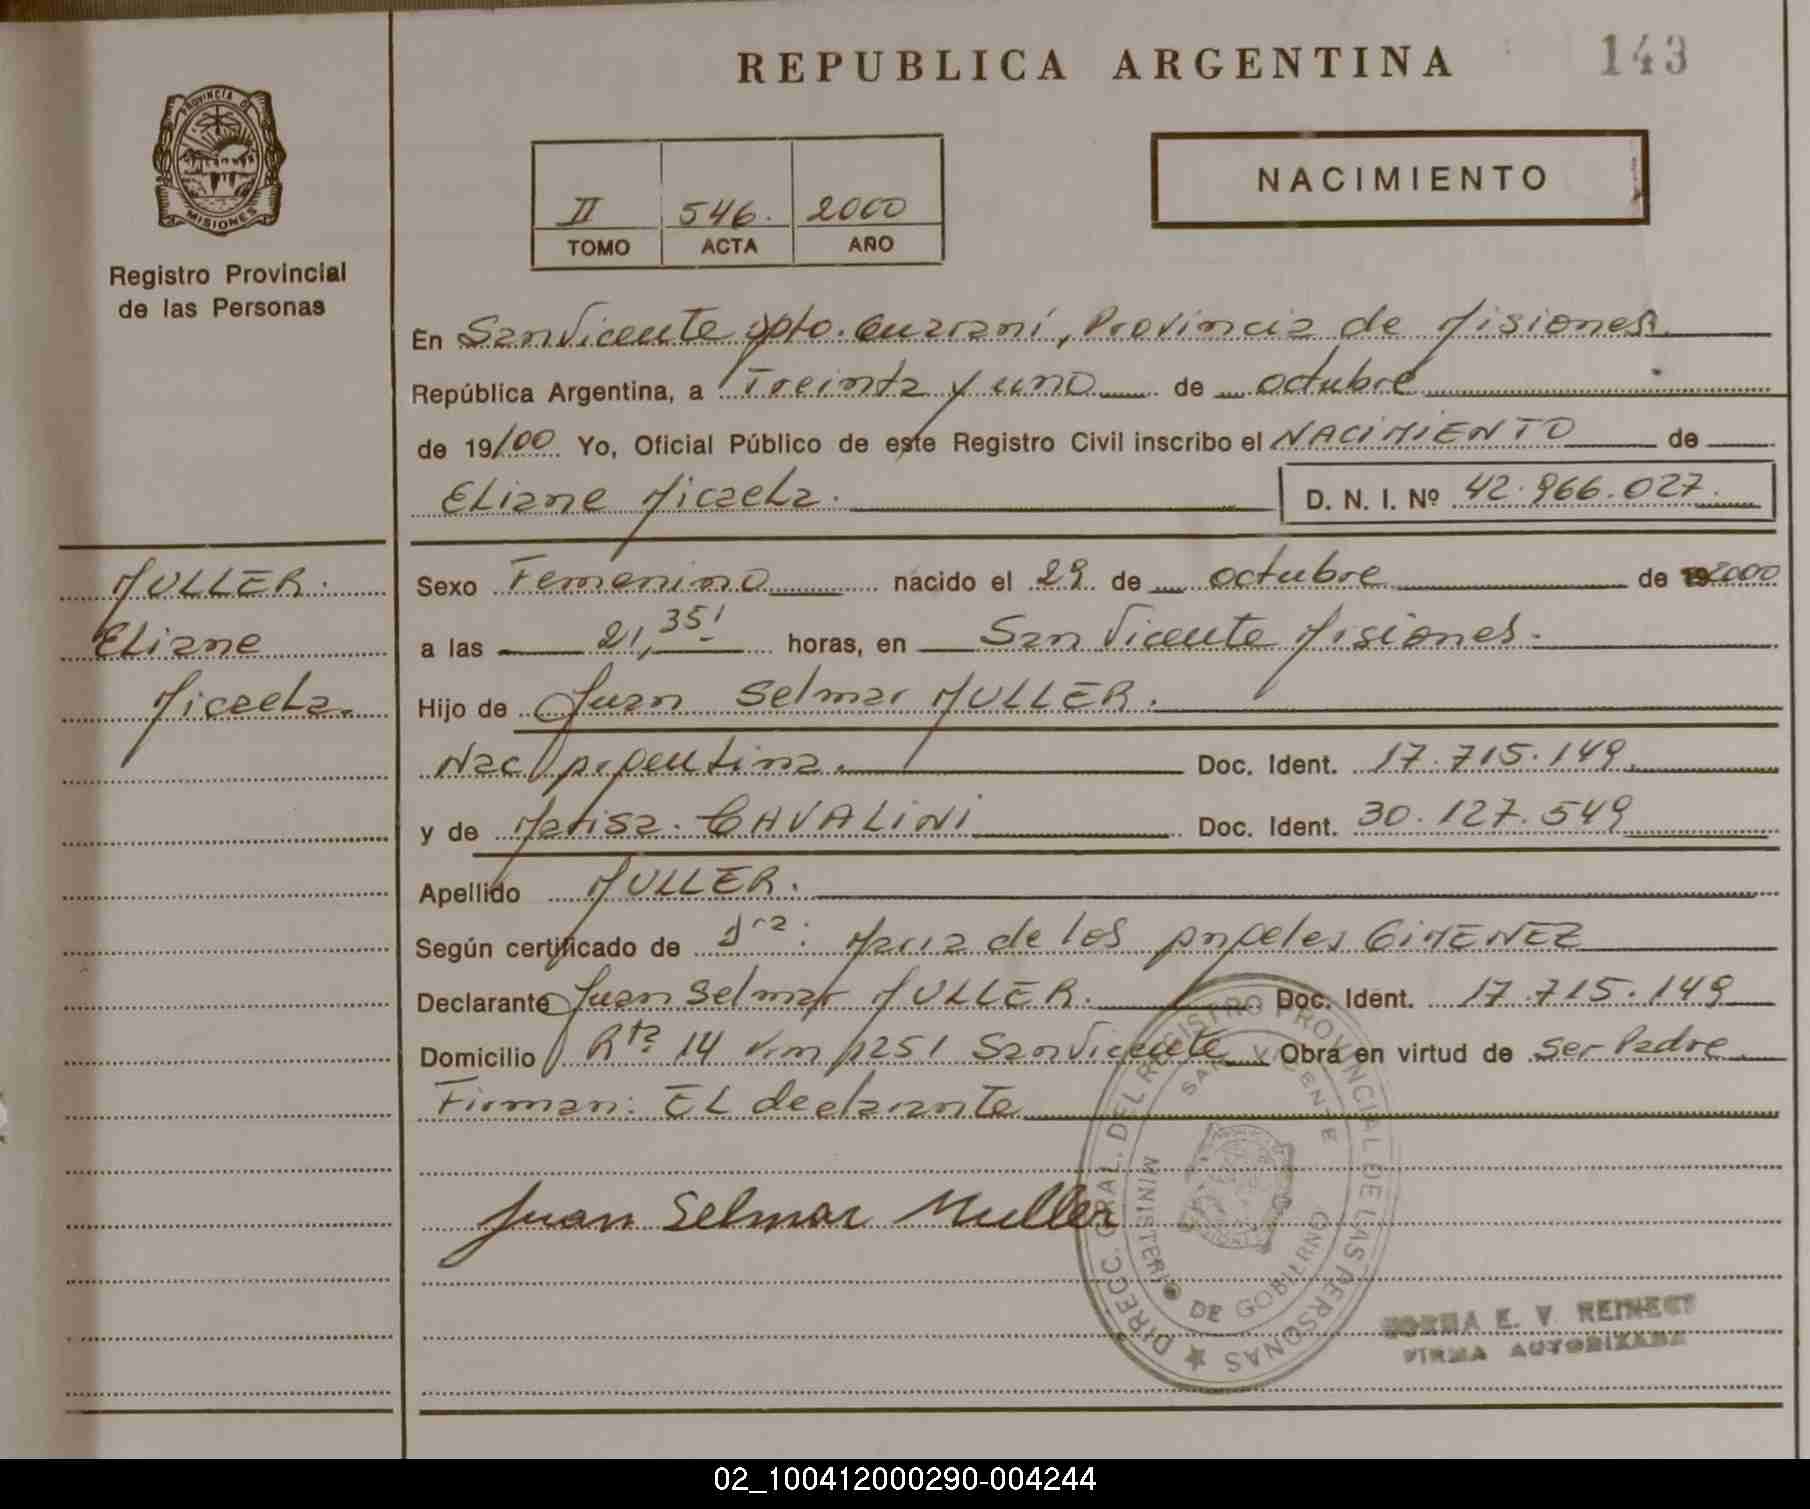 REPUBLICA ARGENTINA
143
PROVINCIA DE
MISIONES
Registro Provincial
de las Personas
II 546. 2000
TOMO ACTA AÑO
NACIMIENTO
En San Vicente Dpto. Guaraní, Provincia de Misiones
República Argentina, a Treinta y uno de octubre
de 19/00 Yo, Oficial Público de este Registro Civil inscribo el NACIMIENTO de
Eliane Micaela. D. N. I. Nº 42.966.027.
MULLER.
Eliane
Micaela.
Sexo Femenino nacido el 29 de octubre de 192000
a las 21,35' horas, en San Vicente Misiones.
Hijo de Juan Selmar MULLER.
Nac Argentina. Doc. Ident. 17.715.149.
y de Marisa. CAVALINI Doc. Ident. 30.127.549
Apellido MULLER.
Según certificado de Dra: Maria de los Angeles GIMENEZ
Declarante Juan Selmar MULLER. Doc. Ident. 17.715.149
Domicilio Rta 14 Km 1251 San Vicente Obra en virtud de ser Padre
Firman: EL declarante
Juan Selmar Muller
DIRECC. GRAL. DEL REGISTRO PROVINCIAL DE LAS PERSONAS
SAN VICENTE
MINISTERIO DE GOBIERNO
NORMA E. V. REINECT
FIRMA AUTORIZADA
02_100412000290-004244